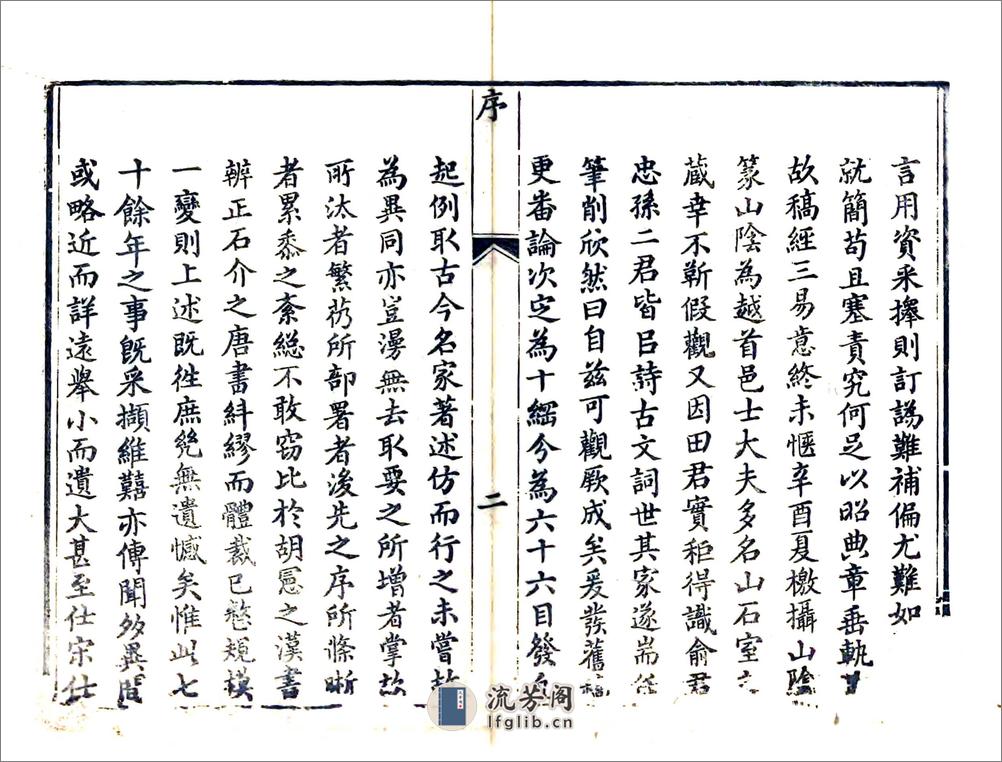 言用資采擇則訂譌難補偏尤難如
就簡苟且塞責究何足以昭典章垂軌
故稿經三易意終未愜辛酉夏檄攝山陰
篆山陰為越首邑士大夫多名山石室
藏幸不靳假觀又因田君實秬得識俞君
忠孫二君皆㠯詩古文詞世其家遂耑
筆削欣然曰自兹可觀厥成矣爰發舊稿
更番論次定為十綱分為六十六目發凡
序
二
起例取古今名家著述仿而行之未嘗故
為異同亦豈漫無去取要之所增者掌故
所汰者繁蕪所部署者後先之序所條晰
者累黍之紊總不敢竊比於胡憲之漢書
辨正石介之唐書糾繆而體裁已整規模
一變則上述既往庶幾無遺憾矣惟此七
十餘年之事旣采擷維囏亦傳聞多異間
或略近而詳遠舉小而遺大甚至仕宋仕
流芳阁
lfglib.cn